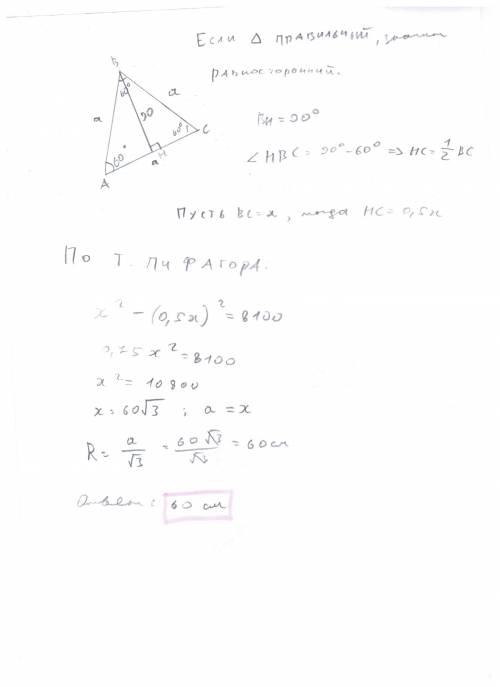 Если Δ правильный, значит
равносторонний.
B
60°
a
a
90
BH = 90°
60°
C
60°
H
a
A
∠HBC = 90° - 60° => HC = 1/2 BC
Пусть BC = x, тогда HC = 0,5x
По т. Пифагора.
x² - (0,5x)² = 8100
0,75x² = 8100
x² = 10800
x = 60√3 ; a = x
R = a/√3 = 60√3/√3 = 60 см
Ответ: 60 см